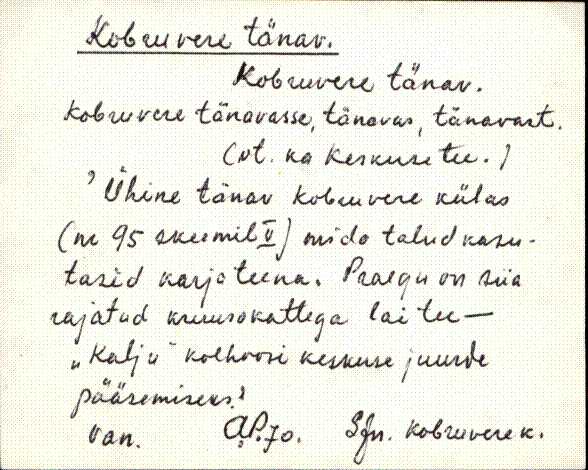 Kobruvere tänav.
Kobruvere tänav.
Kobruvere tänavasse, tänavas, tänavast.
(vt. ka Keskuse tee.)
' Ühine tänav Kobruvere külas
(nr 95 skeemil V) mida talud kasu-
tasid karjateena. Praegu on siia
rajatud kruusakattega lai tee —
„Kalju" kolhoosi keskuse juurde
pääsemiseks.'
Van. A.P. 70. Sjn. Kobruvere k.